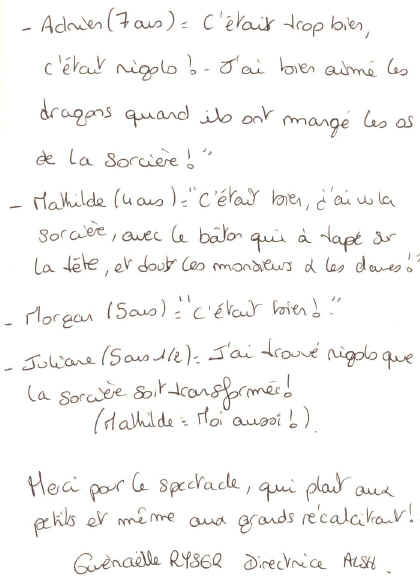 - Adrien (7 ans) = C'était trop bien,
c'était rigolo ! - J'ai bien aimé les
dragons quand ils ont mangé les os
de la Sorcière ! "
- Mathilde (4 ans) = "C'était bien, j'ai vu la
sorcière, avec le bâton qui a tapé sur
la tête, et tout les monsieurs & les dames ! "
- Morgan (5 ans) = "C'était bien ! "
- Juliane (5 ans 1/2) = J'ai trouvé rigolo que
la sorcière soit transformée !
(Mathilde = Moi aussi ! ).
Merci pour le spectacle, qui plait aux
petits et même aux grands récalcitrant !
Gwénaëlle Directrice ALSH.